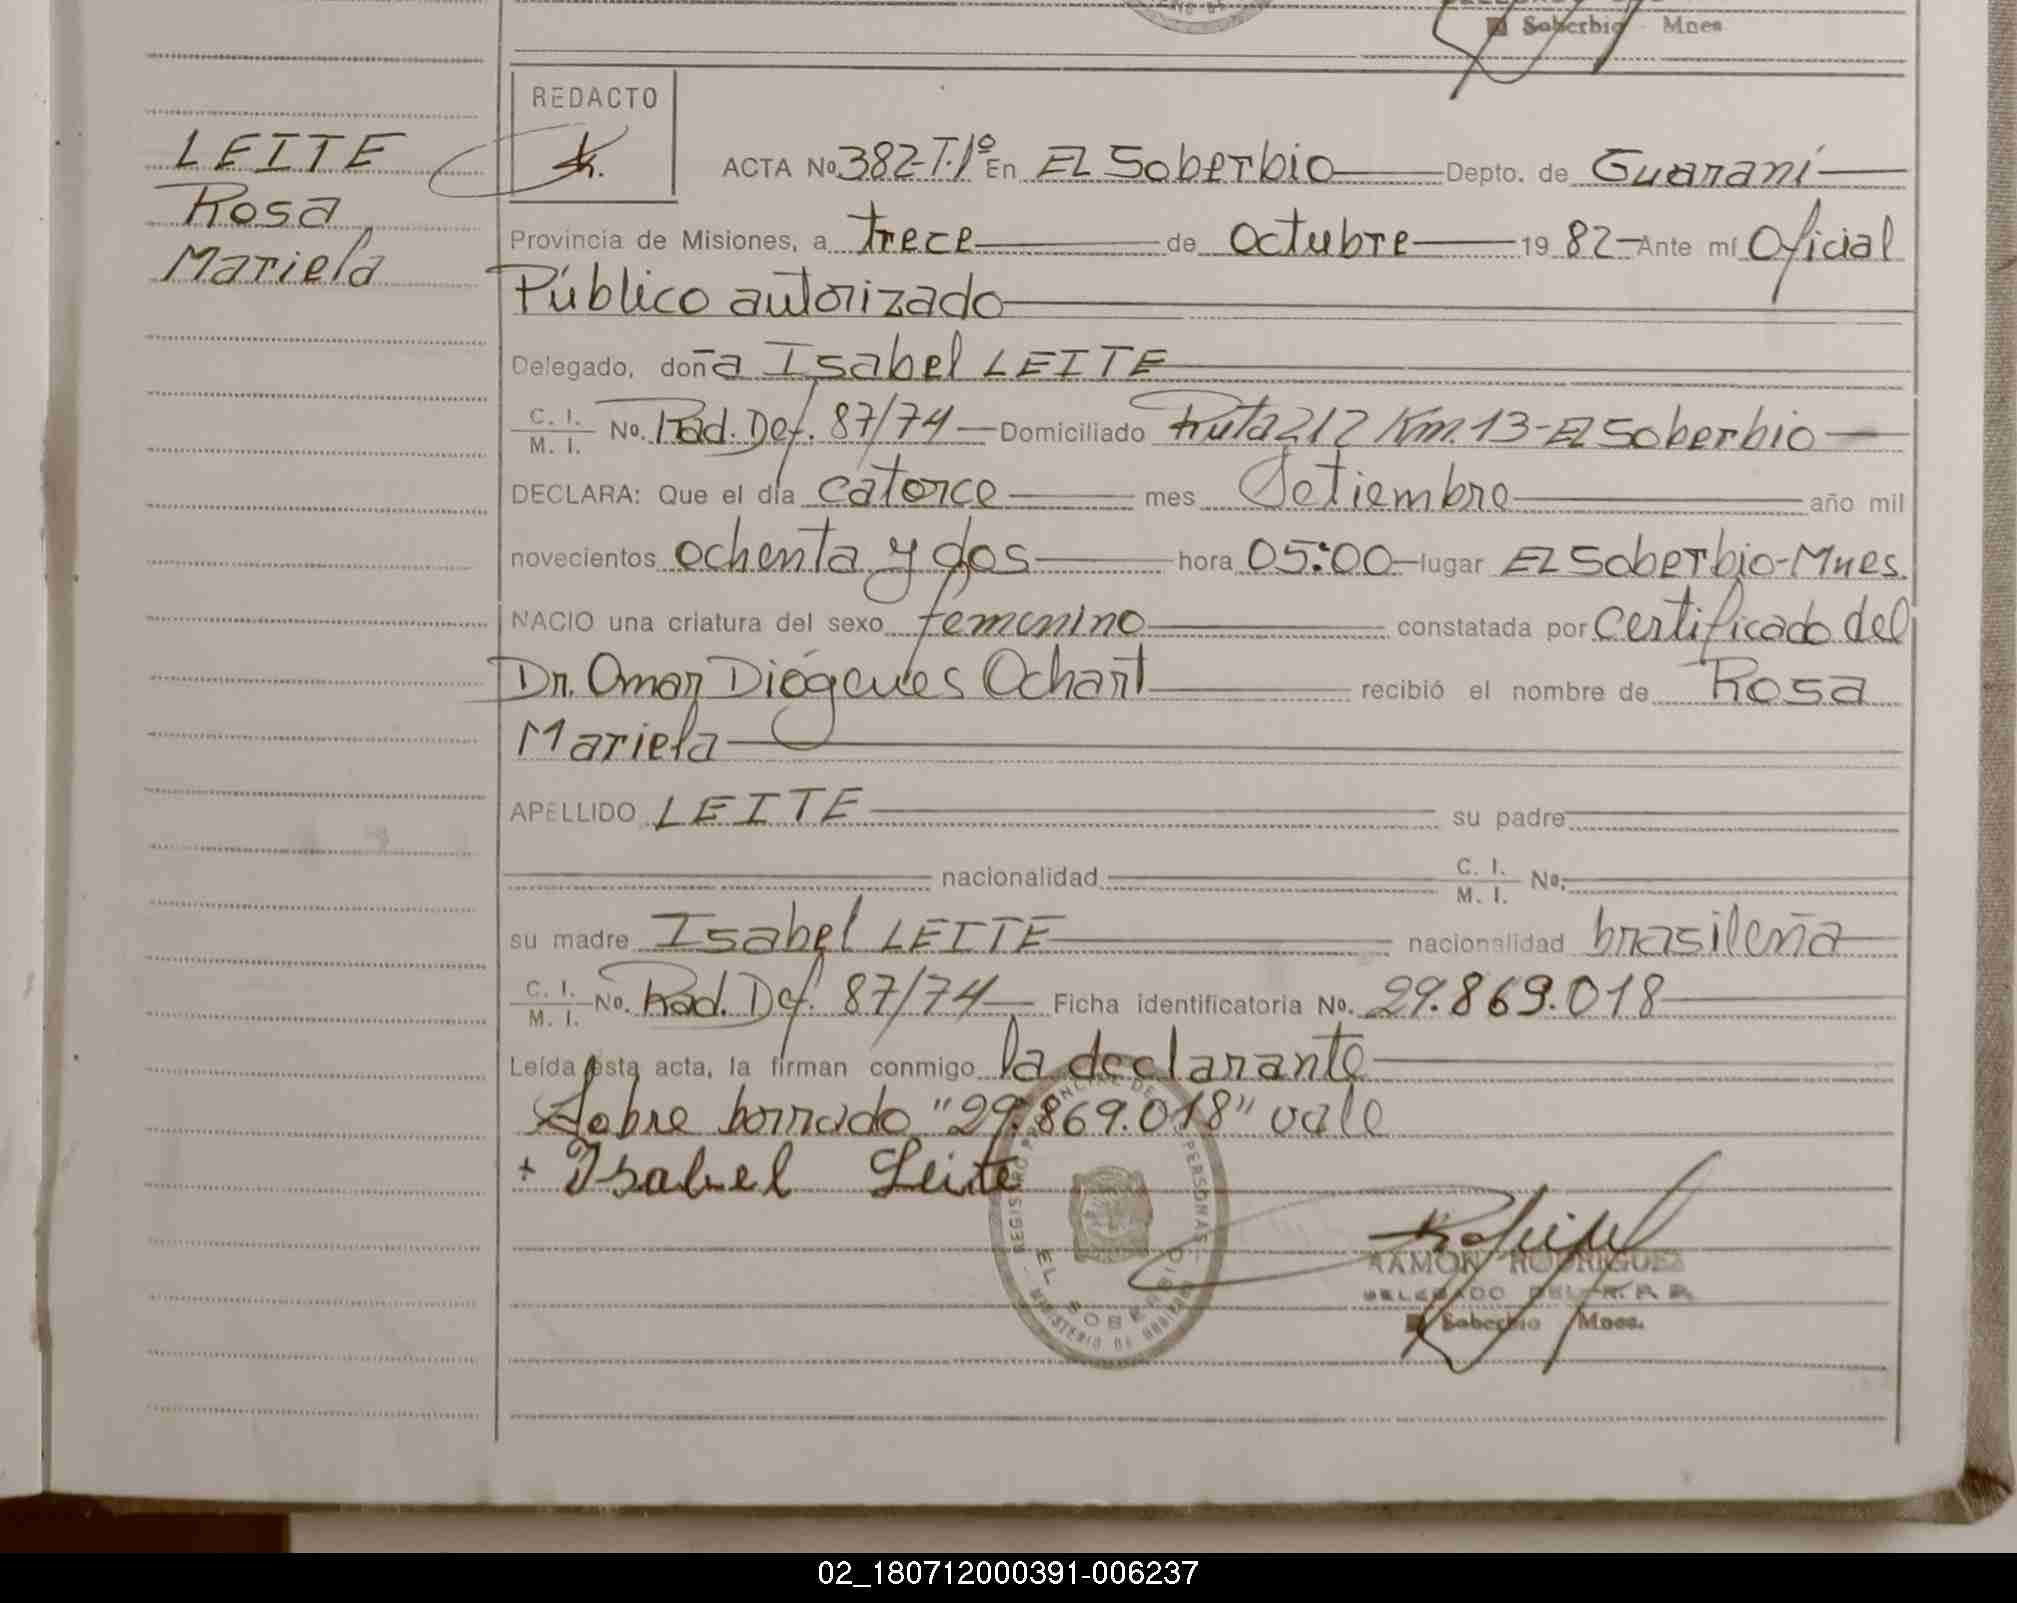 Soberbio Mnes
REDACTO
LEITE
Rosa
Mariela
ACTA No 382-T.1º En El Soberbio Depto. de Guaraní
Provincia de Misiones, a trece de octubre 1982 Ante mí Oficial
Público autorizado
Delegado, doña Isabel LEITE
C. I. / M. I. No. Rad. Def. 87/74 Domiciliado Ruta 212 Km. 13-El Soberbio
DECLARA: Que el día catorce mes Setiembre año mil
novecientos ochenta y dos hora 05:00 lugar El Soberbio-Mnes.
NACIO una criatura del sexo femenino constatada por Certificado del
Dr. Omar Diógenes Ochart recibió el nombre de Rosa
Mariela
APELLIDO LEITE su padre
nacionalidad C. I. / M. I. No.
su madre Isabel LEITE nacionalidad brasileña
C. I. / M. I. No. Rad. Def. 87/74 Ficha identificatoria No. 29.869.018
Leída esta acta, la firman conmigo la declarante
Sobre borrado "29.869.018" vale
+ Isabel Leite
REGISTRO PROVINCIAL DE PERSONAS
EL SOBERBIO
MINISTERIO DE GOBIERNO
RAMON RODRIGUEZ
DELEGADO DEL R.P.P.
Soberbio Mnes.
02_180712000391-006237